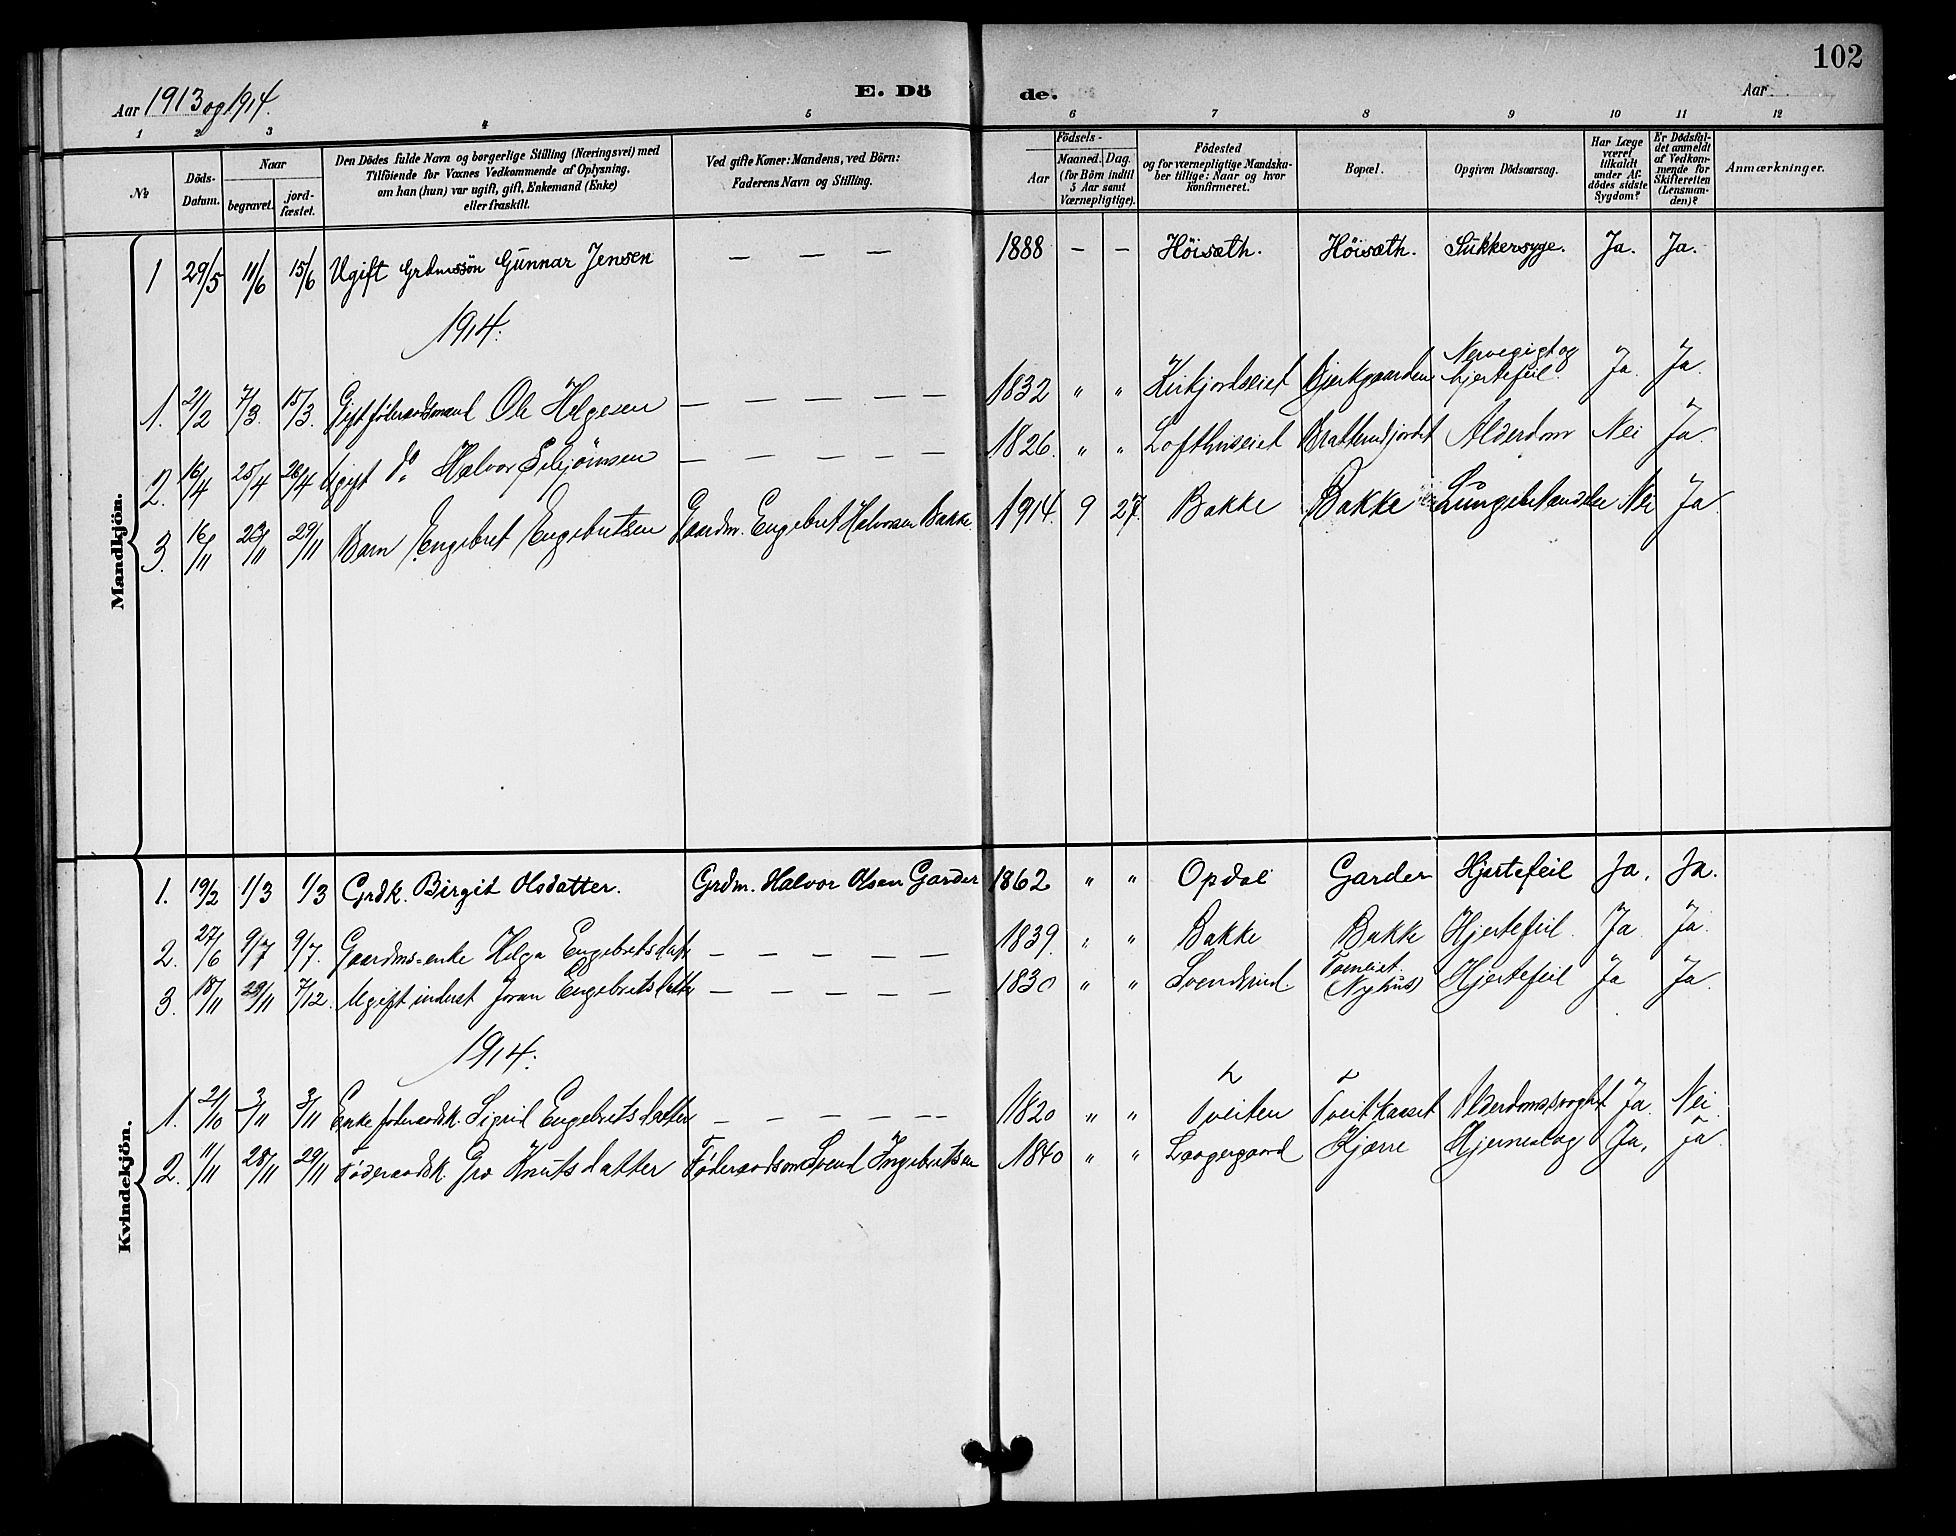 102
Aar 1913 og 1914.
E. Dö
de.
Aar
1 2 3 4 5 6 7 8 9 10 11 12
№
Döds-Datum.
Naar
begravet.
jord-fæstet.
Den Dödes fulde Navn og borgerlige Stilling (Næringsvei) med
Tilföiende for Voxnes Vedkommende af Oplysning,
om han (hun) var ugift, gift, Enkemand (Enke)
eller fraskilt.
Ved gifte Koner: Mandens, ved Börn:
Faderens Navn og Stilling.
Födsels-
Aar
Maaned. Dag.
(for Börn indtil
5 Aar samt
Værnepligtige).
Födested
og for værnepligtige Mandska-
ber tillige: Naar og hvor
Konfirmeret.
Bopæl.
Opgiven Dödsaarsag.
Har Læge
været
tilkaldt
under Af-
dödes sidste
Sygdom?
Er Dödsfal-
det anmeldt
af Vedkom-
mende for
Skifteretten
(Lensman-
den)?
Anmærkninger.
Mandkjön.
1 29/5 11/6 15/6 Ugift Grdmssön Gunnar Jensen — — — 1888 — — Höisæth. Höisæth. Sukkersyge. Ja. Ja.
1914.
1. 21/2 7/3 15/3 Gift föderaadsmand Ole Helgesen — — — — — 1832 " " Kirkjordseiet Bjerkgaarden Nervegigt og hjertefeil. Ja. Ja.
2. 16/4 25/4 26/4 Ugift do Halvor — — — — — 1826 " " Lofthuseiet Alderdom Nei Ja.
3. 16/11 23/11 29/11 Barn Engebret Engebretsen Gaardm. Engebret Halvorsen Bakke. 1914. 9 27 Bakke Bakke Nei Ja.
Kvindekjön.
1. 19/2 1/3 1/3 Grdk. Birgit Olsdatter. Grdm. Halvor Olsen Garder 1862 " " Opdal Garder Hjertefeil Ja. Ja.
2. 27/6 9/7 9/7. Gaardms-enke Helga Engebretsdatter — — — — — 1839. " " Bakke Bakke Hjertefeil. Ja. Ja.
3. 18/11 29/11 7/12. Ugift inderst Joran Engebretsdatter — — — — — 1830 " " Svendsrud. (Nyhus) Hjertefeil Ja Ja.
1914.
1. 21/10 3/11 3/11 Enke föderaadsk. Sigrid Engebretsdatter — — — — 1820 " " Tveiten Alderdomssvaghet Ja. Nei.
2. 11/11 28/11 29/11 Föderaadsk. Gro Knutsdatter Föderaadsm Svend Ingebretsen 1840 " " Laagegaard Kjærre Hjerneslag Ja. Ja.